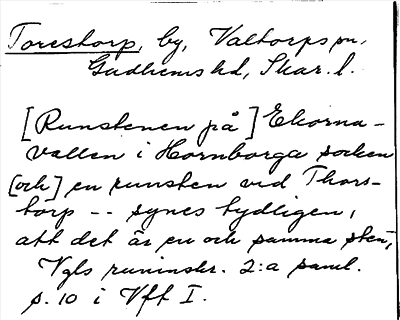 Torestorp, by, Valtorps sn,
Gudhems hd, Skar. l.
[Runstenen på] Ekorna-
vallen i Hornborga socken
[och] en runsten vid Thors-
torp -- synes tydligen,
att det är en och samma sten,
Vgls runinskr. 2:a saml.
s. 10 i Vft I.